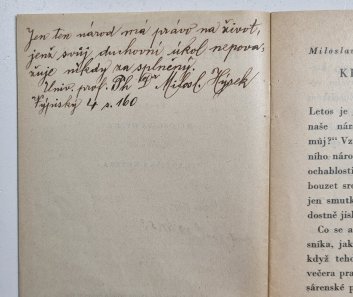 Jen ten národ má právo na život,
jenž svůj duchovní úkol nepova-
žuje nikdy za splněný.
Univ. prof. Ph Dr Milosl. Hýsek
Výpisky 4 s. 160
Miloslav
K
Letos je
naše nár
můj?" Vz
ního náro
ochablosti
bouzet sr
jen smutk
dostně jís
Co se a
sníka, jak
když teho
večera pra
sárenské p